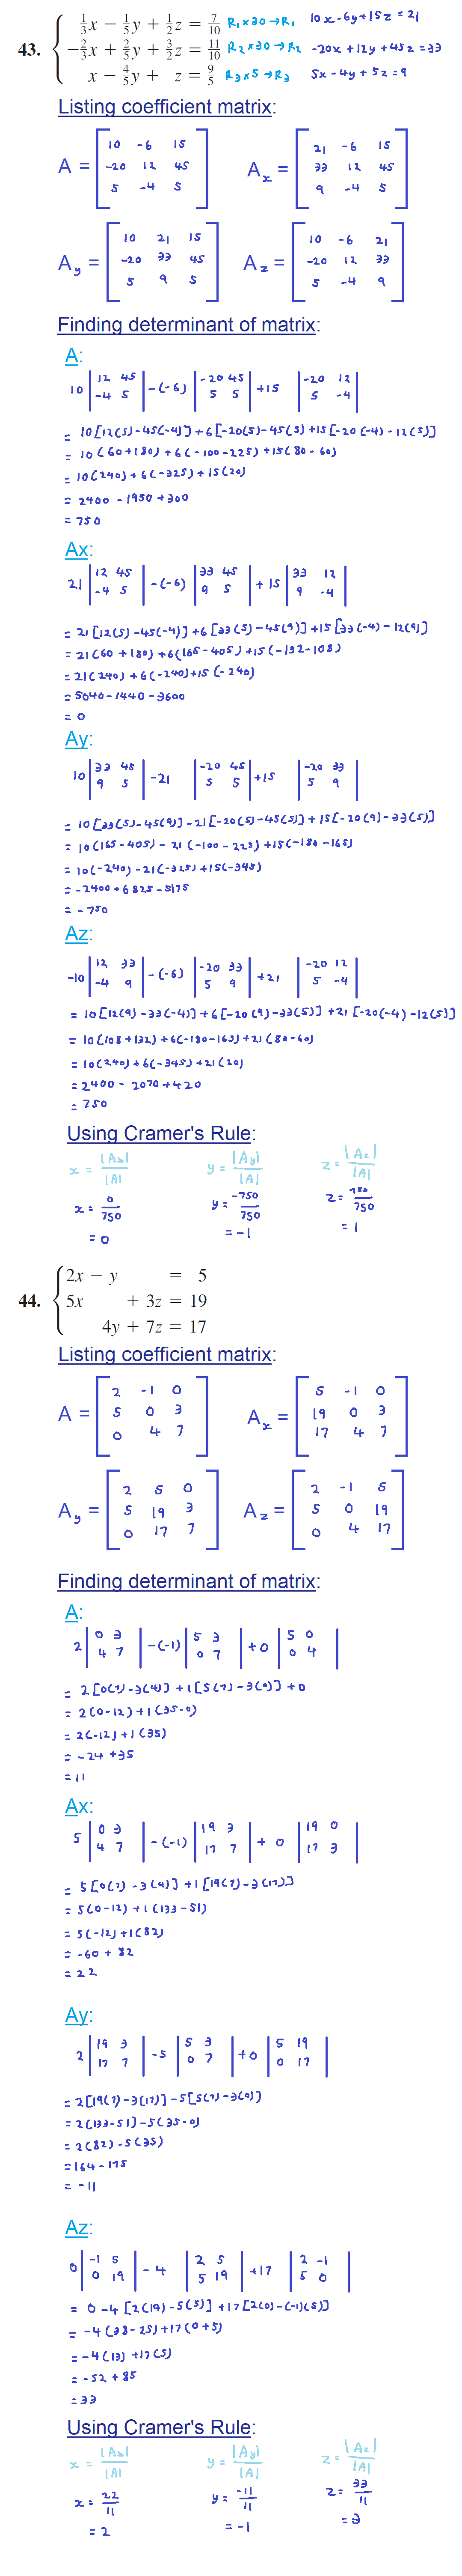 43. { 1/3x − 1/5y + 1/2z = 7/10 R₁×30→R₁ 10x-6y+15z=21
−2/3x + 2/5y + 3/2z = 11/10 R₂×30→R₂ -20x+12y+45z=33
x − 4/5y + z = 9/5 R₃×5→R₃ 5x-4y+5z=9
Listing coefficient matrix:
A = [10 -6 15
-20 12 45
5 -4 5]
Ax = [21 -6 15
33 12 45
9 -4 5]
Ay = [10 21 15
-20 33 45
5 9 5]
Az = [10 -6 21
-20 12 33
5 -4 9]
Finding determinant of matrix:
A:
10 |12 45| -(-6) |-20 45| +15 |-20 12|
|-4 5| |5 5| |5 -4|
= 10[12(5)-45(-4)]+6[-20(5)-45(5)+15[-20(-4)-12(5)]
= 10(60+180)+6(-100-225)+15(80-60)
= 10(240)+6(-325)+15(20)
= 2400-1950+300
= 750
Ax:
21 |12 45| -(-6) |33 45| +15 |33 12|
|-4 5| |9 5| |9 -4|
= 21[12(5)-45(-4)]+6[33(5)-45(9)]+15[33(-4)-12(9)]
= 21(60+180)+6(165-405)+15(-132-108)
= 21(240)+6(-240)+15(-240)
= 5040-1440-3600
= 0
Ay:
10 |33 45| -21 |-20 45| +15 |-20 33|
|9 5| |5 5| |5 9|
= 10[33(5)-45(9)]-21[-20(5)-45(5)]+15[-20(9)-33(5)]
= 10(165-405)-21(-100-225)+15(-180-165)
= 10(-240)-21(-325)+15(-345)
= -2400+6825-5175
= -750
Az:
-10 |12 33| -(-6) |-20 33| +21 |-20 12|
|-4 9| |5 9| |5 -4|
= 10[12(9)-33(-4)]+6[-20(9)-33(5)]+21[-20(-4)-12(5)]
= 10(108+132)+6(-180-165)+21(80-60)
= 10(240)+6(-345)+21(20)
= 2400-2070+420
= 750
Using Cramer's Rule:
x = |Ax|/|A| y = |Ay|/|A| z = |Az|/|A|
x = 0/750 y = -750/750 z = 750/750
= 0 = -1 = 1
44. { 2x − y = 5
5x + 3z = 19
4y + 7z = 17
Listing coefficient matrix:
A = [2 -1 0
5 0 3
0 4 7]
Ax = [5 -1 0
19 0 3
17 4 7]
Ay = [2 5 0
5 19 3
0 17 7]
Az = [2 -1 5
5 0 19
0 4 17]
Finding determinant of matrix:
A:
2 |0 3| -(-1) |5 3| +0 |5 0|
|4 7| |0 7| |0 4|
= 2[0(7)-3(4)]+1[5(7)-3(0)]+0
= 2(0-12)+1(35-0)
= 2(-12)+1(35)
= -24+35
= 11
Ax:
5 |0 3| -(-1) |19 3| + 0 |19 0|
|4 7| |17 7| |17 3|
= 5[0(7)-3(4)]+1[19(7)-3(17)]
= 5(0-12)+1(133-51)
= 5(-12)+1(82)
= -60+82
= 22
Ay:
2 |19 3| -5 |5 3| +0 |5 19|
|17 7| |0 7| |0 17|
= 2[19(7)-3(17)]-5[5(7)-3(0)]
= 2(133-51)-5(35-0)
= 2(82)-5(35)
= 164-175
= -11
Az:
0 |-1 5| -4 |2 5| +17 |2 -1|
|0 19| |5 19| |5 0|
= 0-4[2(19)-5(5)]+17[2(0)-(-1)(5)]
= -4(38-25)+17(0+5)
= -4(13)+17(5)
= -52+85
= 33
Using Cramer's Rule:
x = |Ax|/|A| y = |Ay|/|A| z = |Az|/|A|
x = 22/11 y = -11/11 z = 33/11
= 2 = -1 = 3